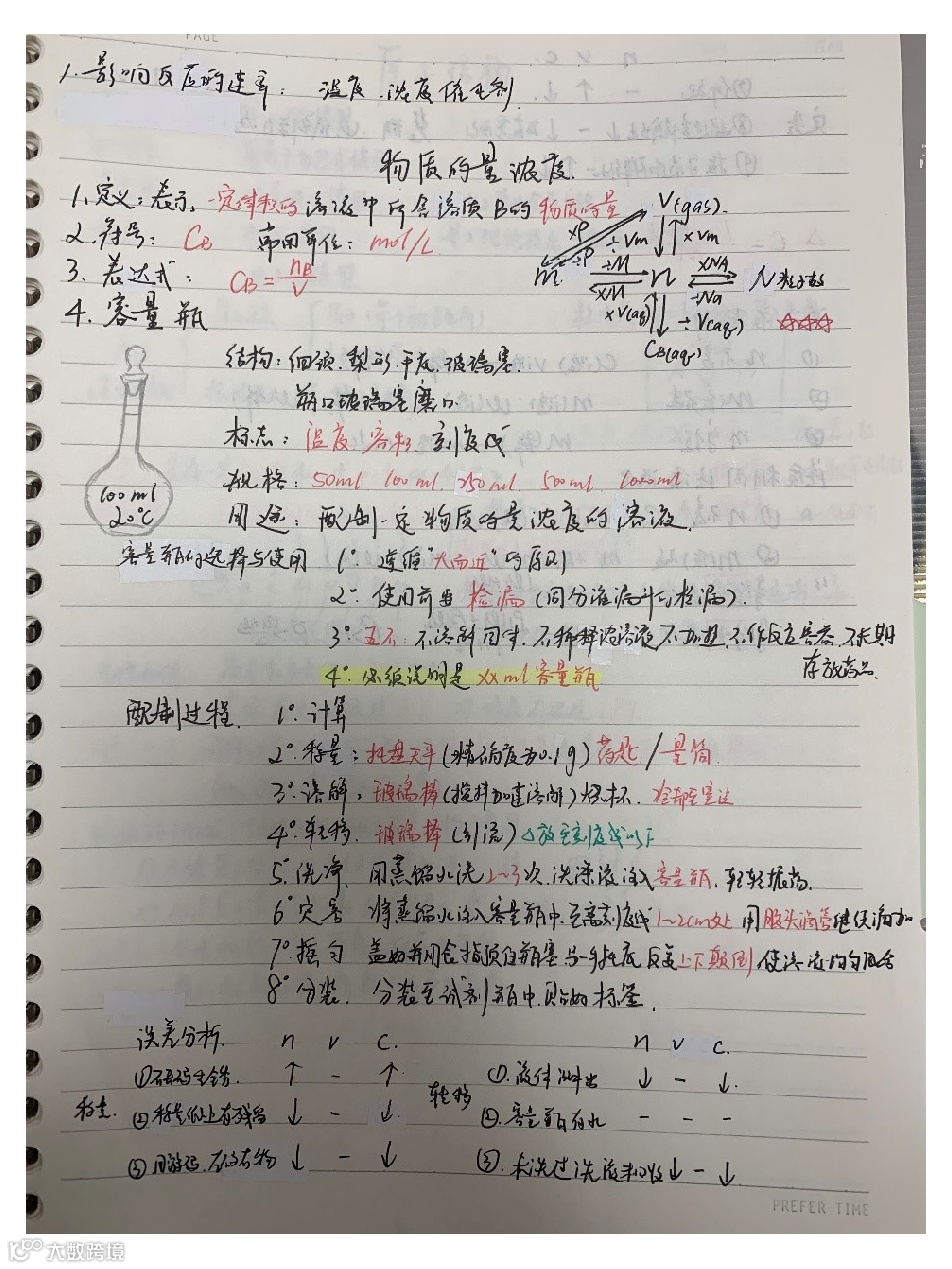 PAGE
1. 影响反应的速率: 温度、浓度、催化剂.
物质的量浓度.
1. 定义: 表示一定体积的溶液中所含溶质B的物质的量
2. 符号: CB 常用单位: mol/L
3. 表达式: CB = nB/V
4. 容量瓶
V(gas).
×ρ ÷ρ ÷Vm ×Vm
m ÷M ×M n ×NA ÷Na N 粒子数
×V(aq) ÷V(aq) ☆☆☆
CB(aq)
结构: 细颈、梨形、平底、玻璃塞.
瓶口玻璃塞磨口
标志: 温度、容积、刻度线
规格: 50ml 100ml 250ml 500ml 1000ml
100ml
20°C
用途: 配制一定物质的量浓度的溶液.
容量瓶的选择与使用 1° 遵循"大而近"的原则
2° 使用前要检漏(同分液漏斗的检漏).
3° 五不: 不溶解固体、不稀释浓溶液、不加热、不作反应容器、不长期
存放药品.
4° 必须说明是××ml容量瓶
配制过程. 1°. 计算
2°. 称量: 托盘天平(精确度为0.1g) 药匙/量筒.
3°. 溶解、玻璃棒(搅拌加速溶解) 烧杯. 冷却至室温
4°. 转移. 玻璃棒(引流) △放至刻度线以下
5°. 洗净. 用蒸馏水洗2~3次. 洗涤液注入容量瓶. 轻轻振荡.
6° 定容 将蒸馏水注入容量瓶中. 至离刻度线1~2cm处 用胶头滴管继续滴加
7° 摇匀 盖好并用食指顶住瓶塞另一手托底 反复上下颠倒 使溶液均匀混合
8° 分装. 分装至试剂瓶中. 贴好标签.
误差分析. n v c. n v c.
①砝码生锈. ↑ − ↑ ①. 液体溅出 ↓ − ↓.
称量. ②称量纸上有残留 ↓ − ↓. 转移 ②. 容量瓶有水 − − −
③用游码. 左码右物 ↓ − ↓ ③. 未洗过洗液未收 ↓ − ↓
PREFER TIME
大数跨境